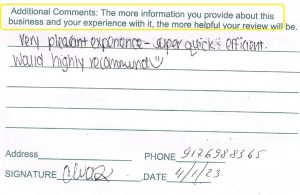 Additional Comments: The more information you provide about this
business and your experience with it, the more helpful your review will be.
Very pleasant experience - super quick & efficient.
Would highly recommend
Address
PHONE 9176988365
SIGNATURE DATE 4/1/23